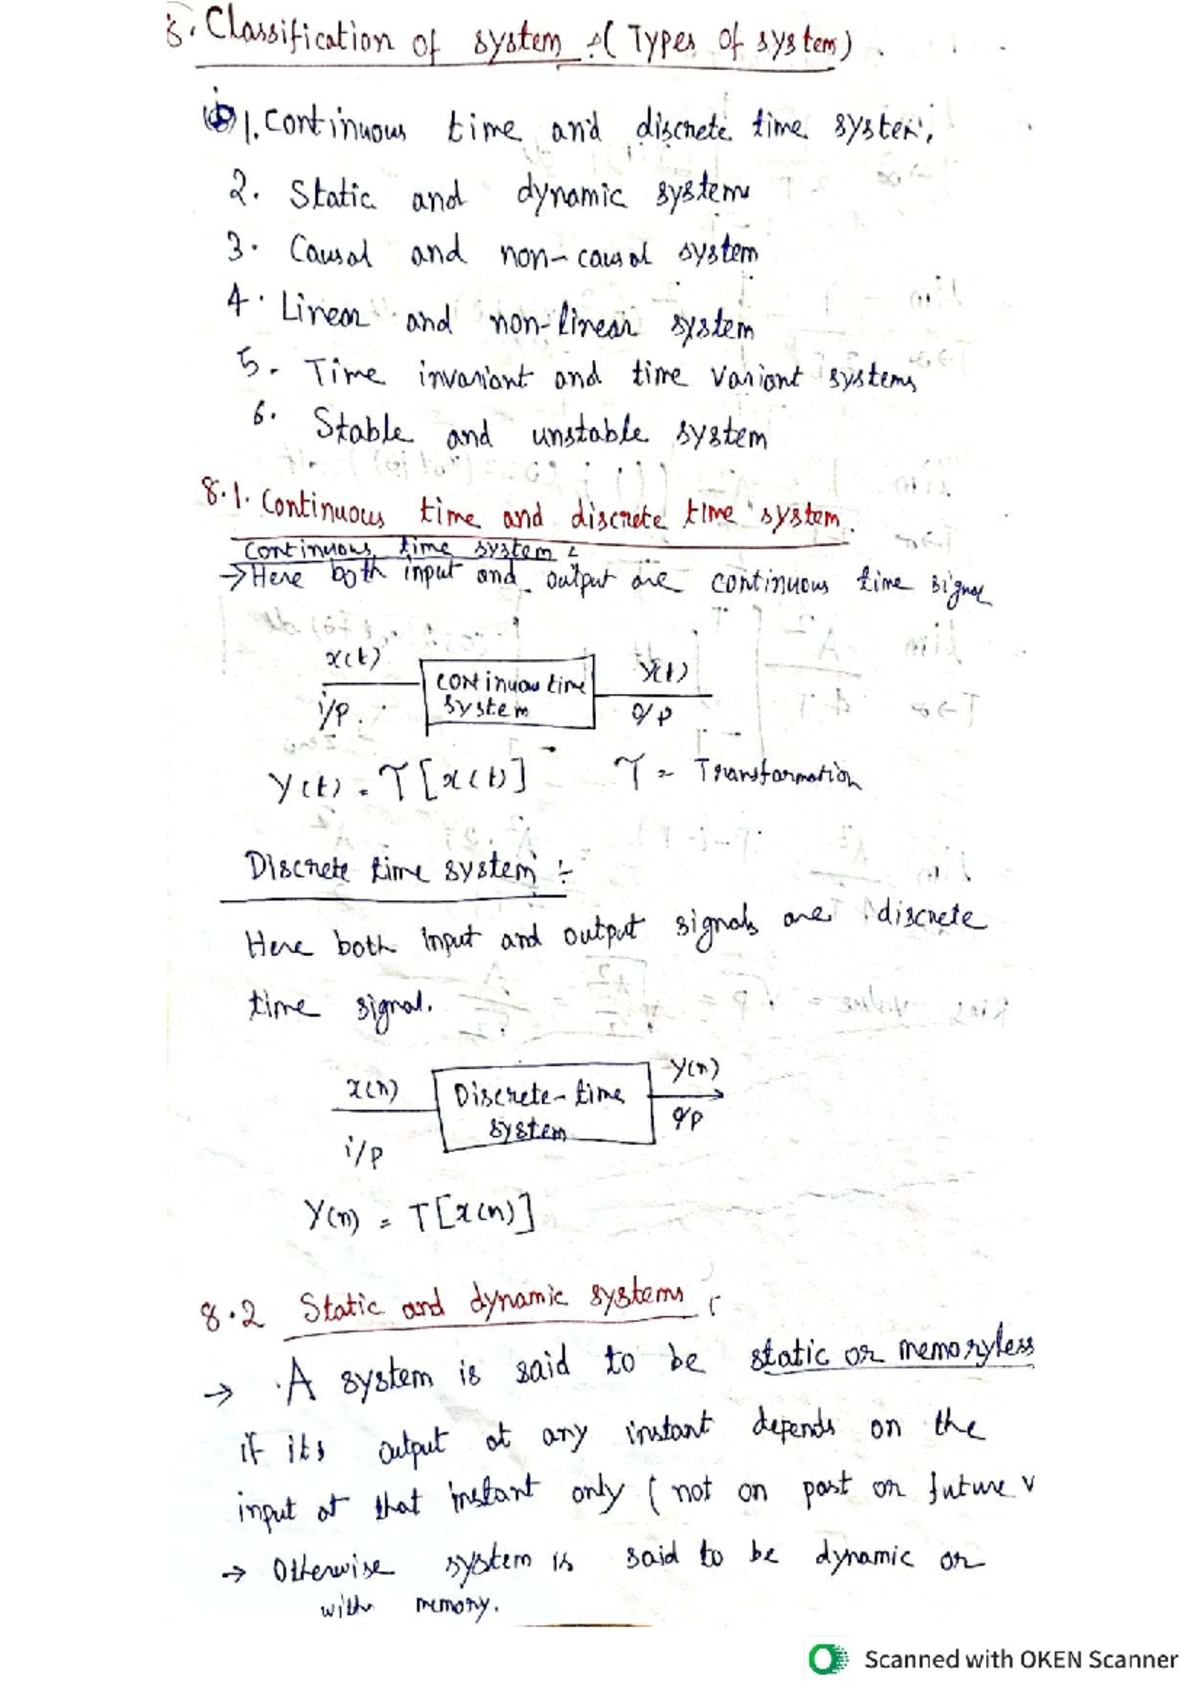 8. Classification of system :- (Types of system)
1. Continuous time and discrete time system.
2. Static and dynamic system
3. Causal and non-causal system
4. Linear and non-linear system
5. Time invariant and time variant systems
6. Stable and unstable system
8.1. Continuous time and discrete time system.
Continuous time system :
→ Here both input and output are continuous time signal
x(t)
i/p.
continuou time
system
y(t)
o/p
Y(t) = T[x(t)] T = Transformation
Discrete time system :-
Here both input and output signals are discrete
time signal.
x(n)
i/p
Discrete-time
system
y(n)
o/p
Y(n) = T[x(n)]
8.2 Static and dynamic systems :
→ A system is said to be static or memoryless
if its output at any instant depends on the
input at that instant only (not on past or future v
→ Otherwise system is said to be dynamic or
with memory.
Scanned with OKEN Scanner